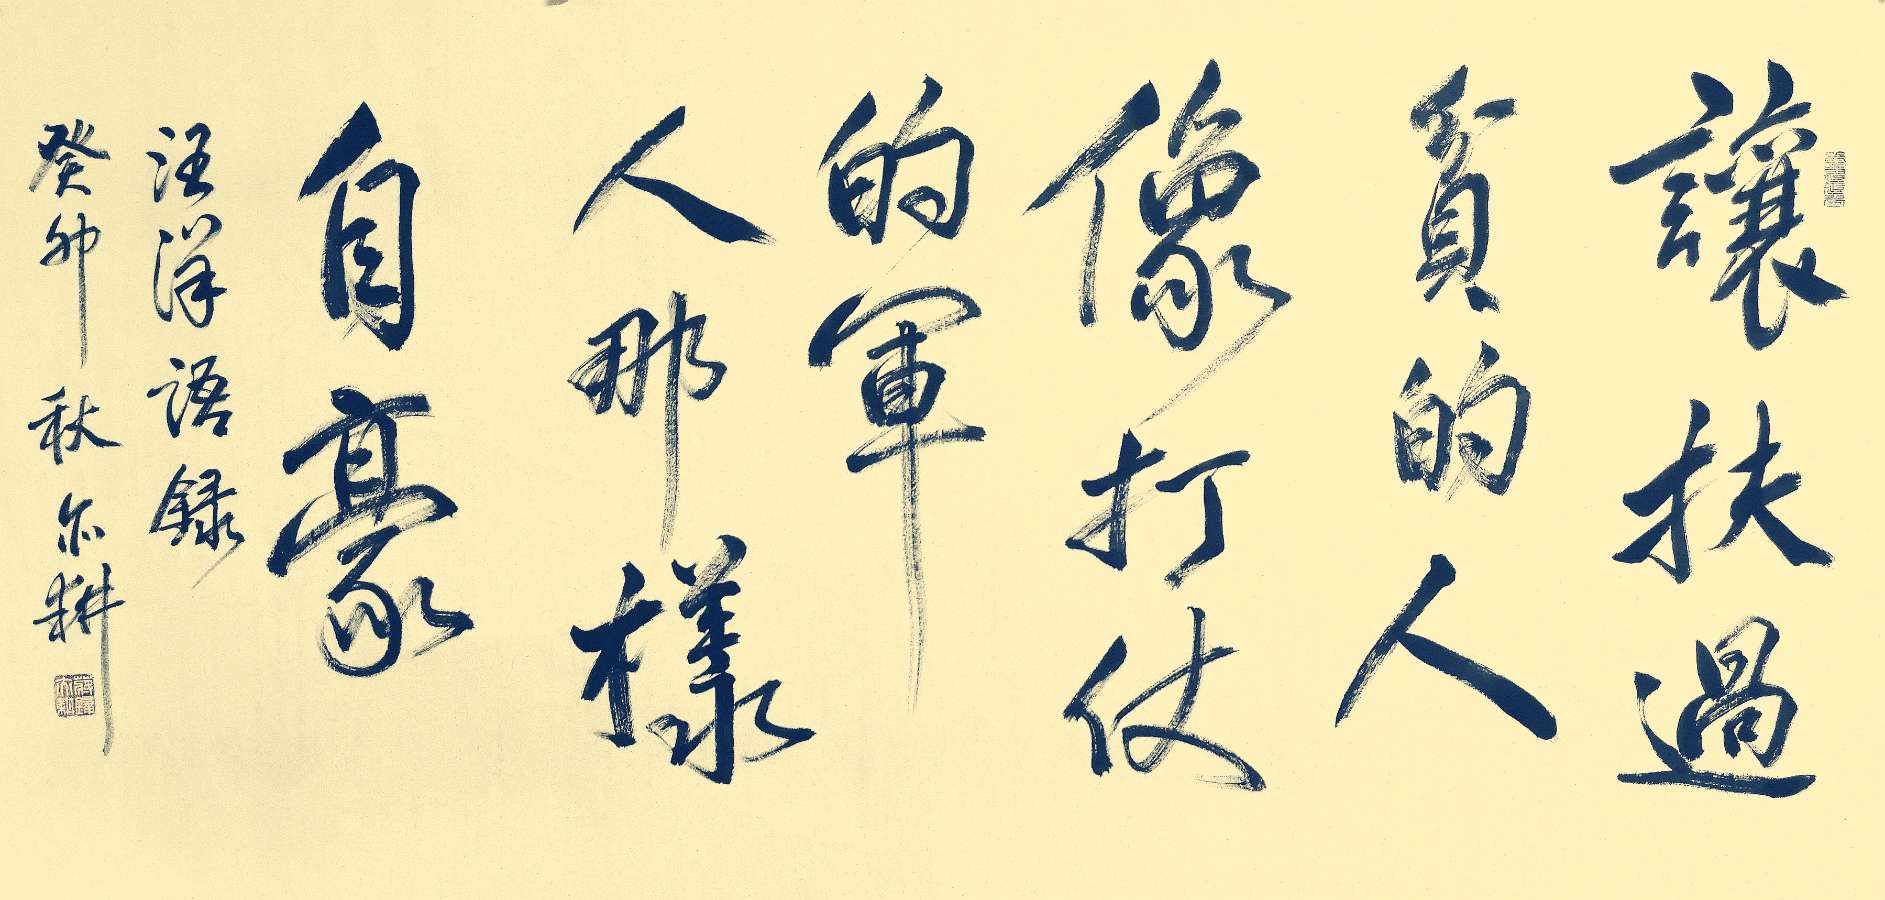 讓扶過
貧的人
像打仗
的軍
人那樣
自豪
汪洋語録
癸卯秋尔耕